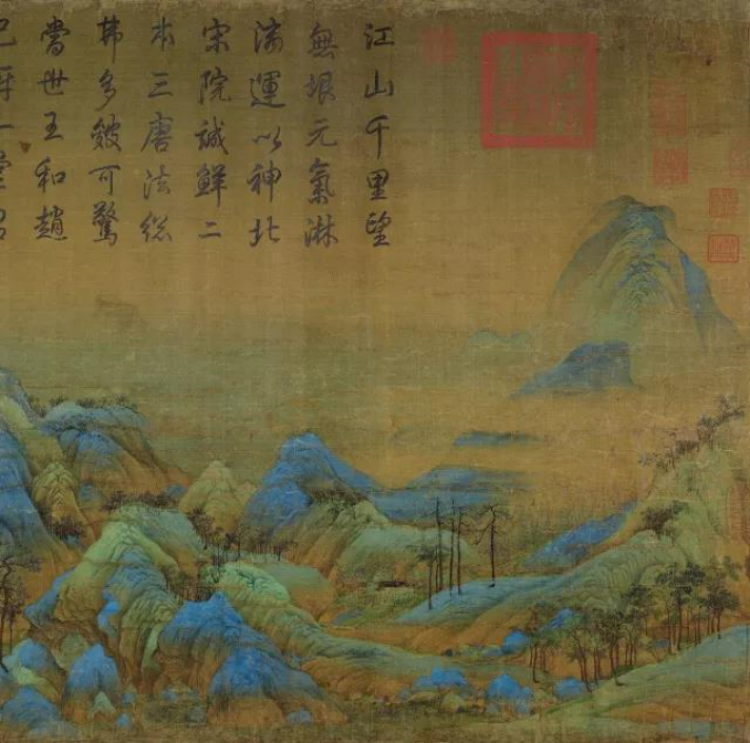 江山千里望
無垠元氣淋
漓運以神北
宋院誠鮮二
本三唐法総
弗多皴可驚
當世王和趙